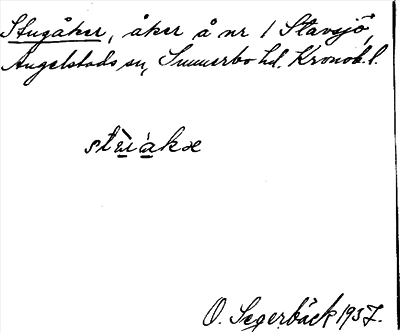 Stugåker, åker å nr 1 Stavsjö,
Angelstads sn, Sunnerbo hd. Kronob. l.
O. Segerbäck 1937.